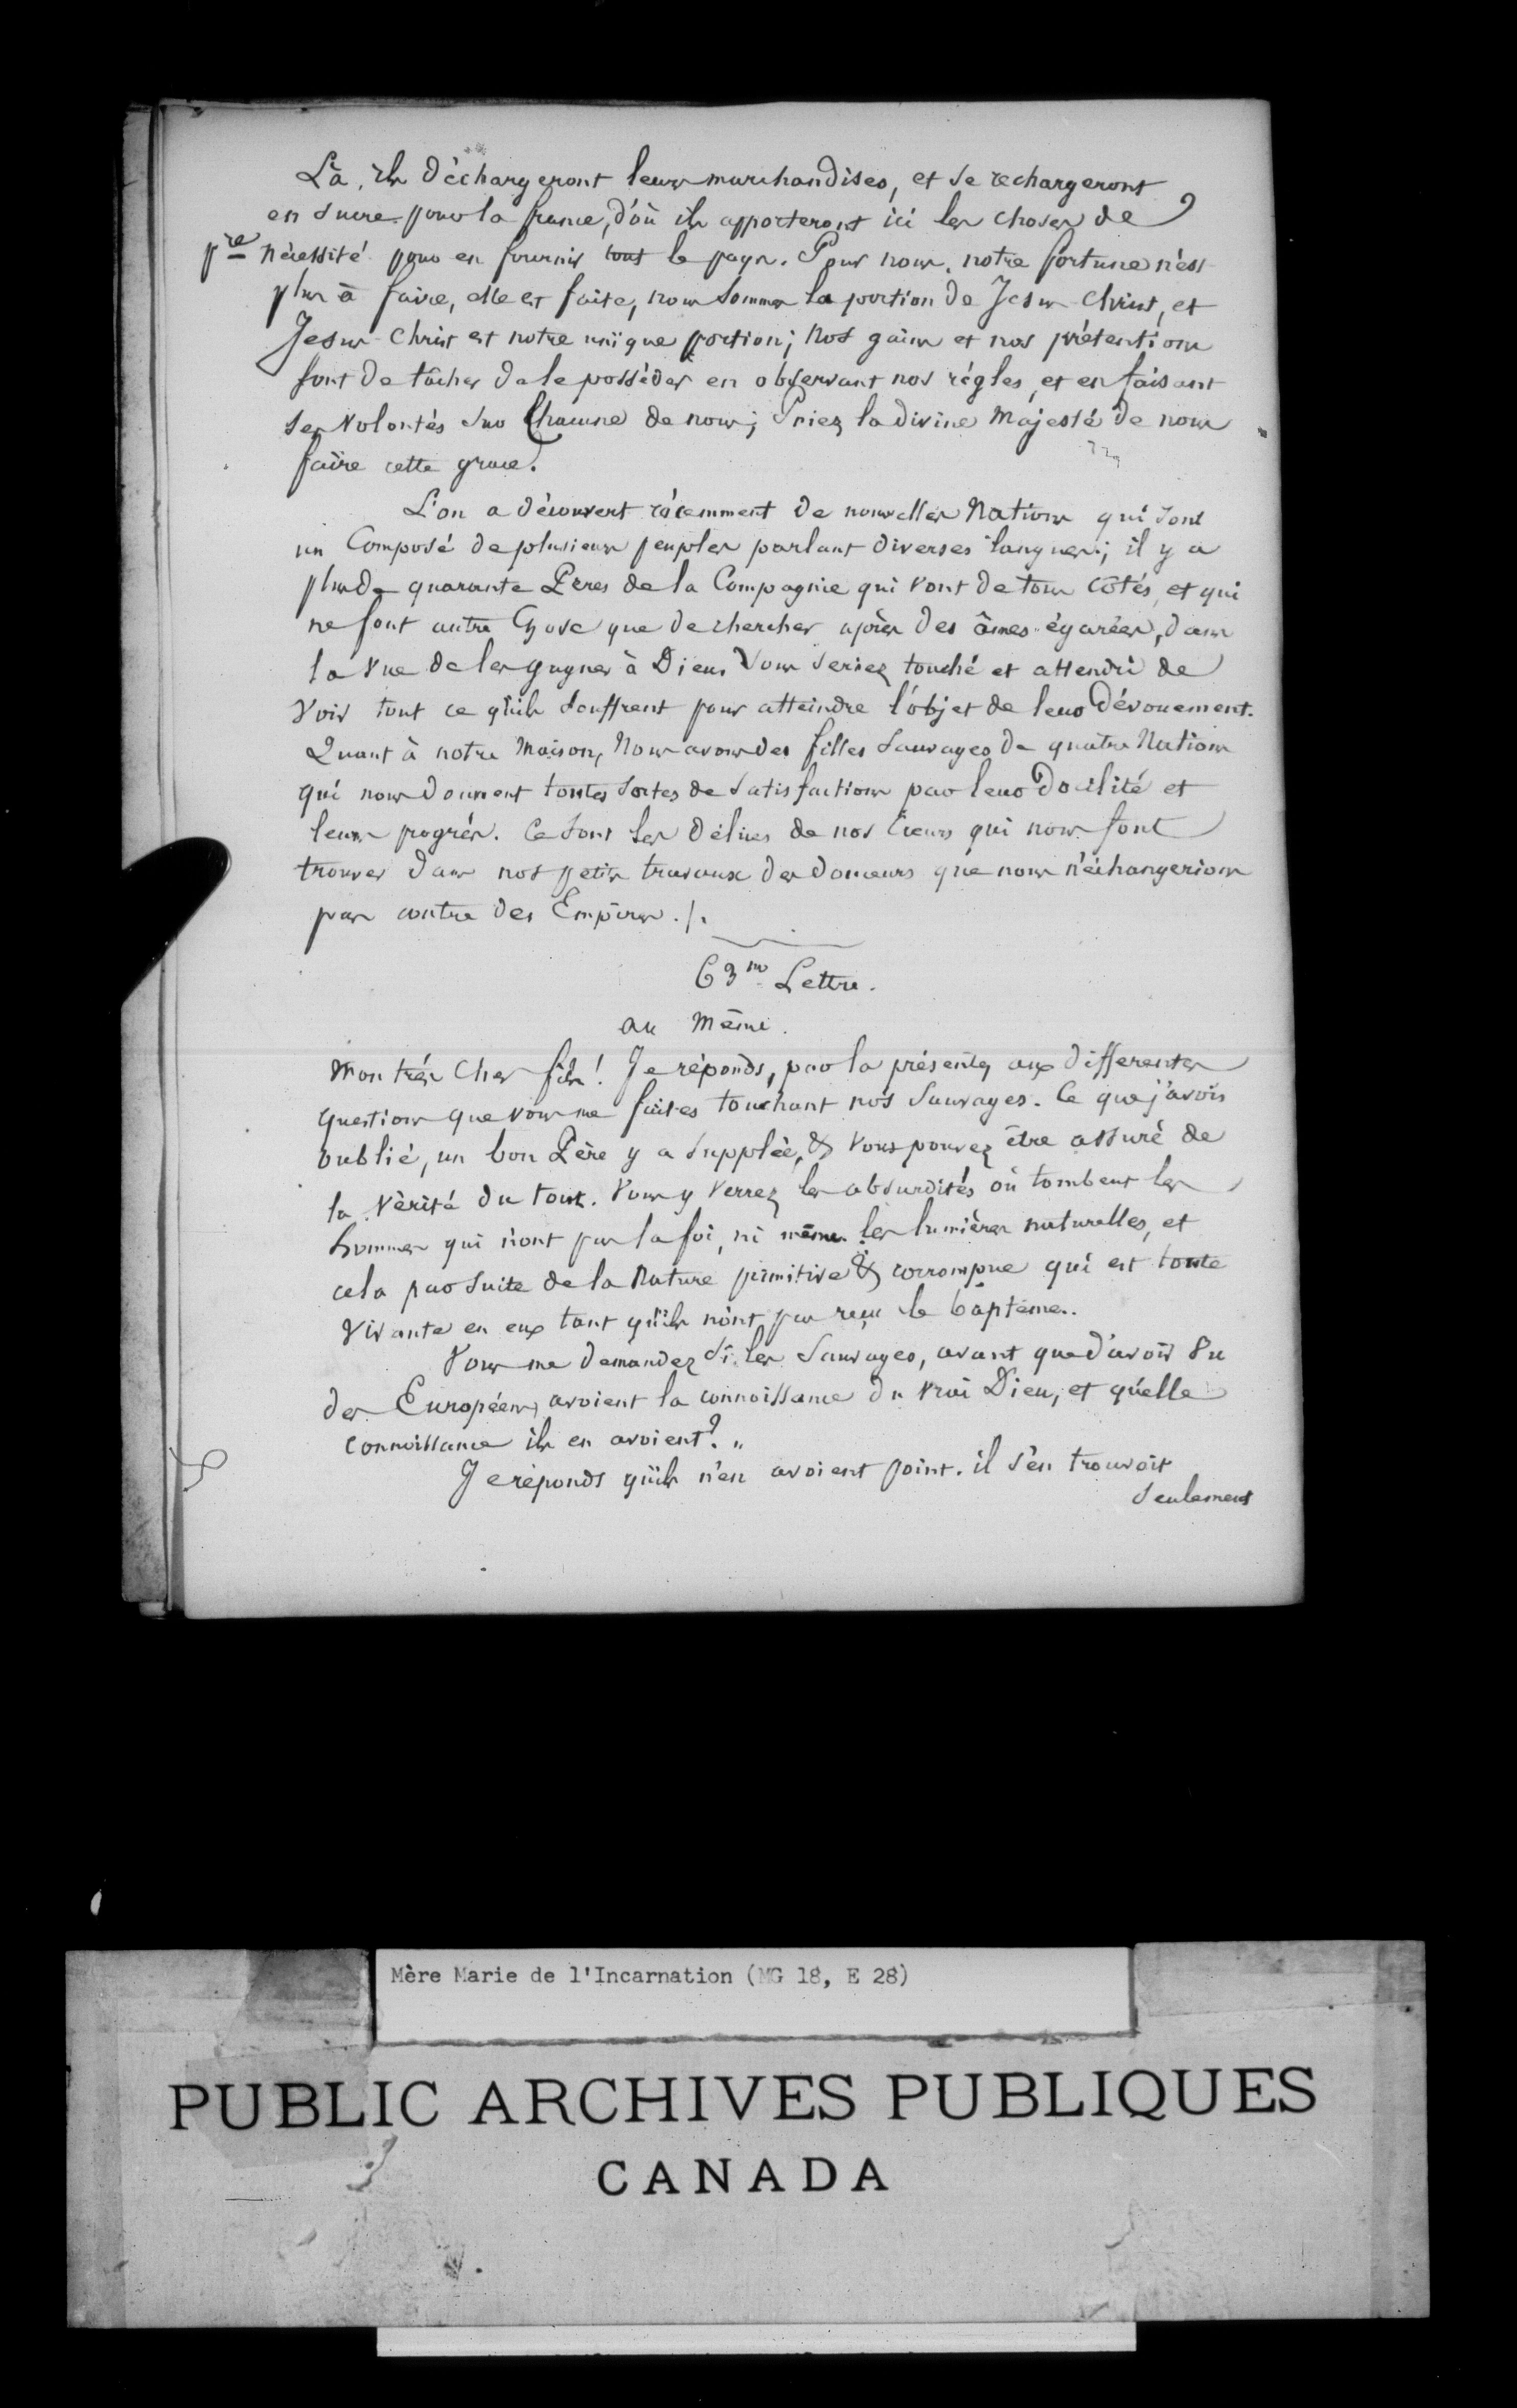 Là, ils déchargeront leurs marchandises, et se rechargeront
en sucre pour la france, d'où ils apporteront ici les choses de
pre nécessité pour en fournir tout le pays. Pour nous, notre fortune n'est
plus à faire, elle est faite, nous sommes la portion de Jesus-Christ, et
Jesus-Christ est notre unique portion; nos gains et nos prétentions
sont de tâcher de le posséder en observant nos régles, et en faisant
ses volontés sur chacune de nous; Priez la divine Majesté de nous
faire cette grace.
L'on a découvert récemment de nouvelles Nations qui sont
un Composé de plusieurs peuples parlant diverses langues; il y a
plus de quarante Pères de la Compagnie qui vont de tous côtés, et qui
ne font autre chose que de chercher après des âmes égarées, dans
la vue de les gagner à Dieu. Vous seriez touché et attendri de
voir tout ce qu'ils souffrent pour atteindre l'objet de leur Dévouement.
Quant à notre Maison, Nous avons des filles Sauvages de quatre Nations
qui nous donnent toutes sortes de satisfactions par leur Docilité et
leurs progrès. Ce sont les délices de nos Cœurs qui nous font
trouver dans nos petits travaux des douceurs que nous n'échangerions
pas contre des Empires ./.
63me Lettre.
au Même.
Mon très Cher fils! Je réponds, par la présente, aux differentes
questions que vous me faites touchant nos Sauvages. Ce que j'avois
oublié, un bon Père y a supplée, & vous pouvez être assuré de
la Vérité du tout. Vous y verrez les absurdités où tombent les
hommes qui n'ont pas la foi, ni même les lumières naturelles, et
cela par suite de la Nature primitive & corrompue qui est toute
vivante en eux tant qu'ils n'ont pas reçu le baptême.
Vous me demandez si les Sauvages, avant que d'avoir vu
des Européens, avoient la connoissance du vrai Dieu, et quelle
connoissance ils en avoient? "
Je réponds qu'ils n'en avoient point. il s'en trouvoit
seulement
Mère Marie de l'Incarnation (MG 18, E 28)
PUBLIC ARCHIVES PUBLIQUES
CANADA